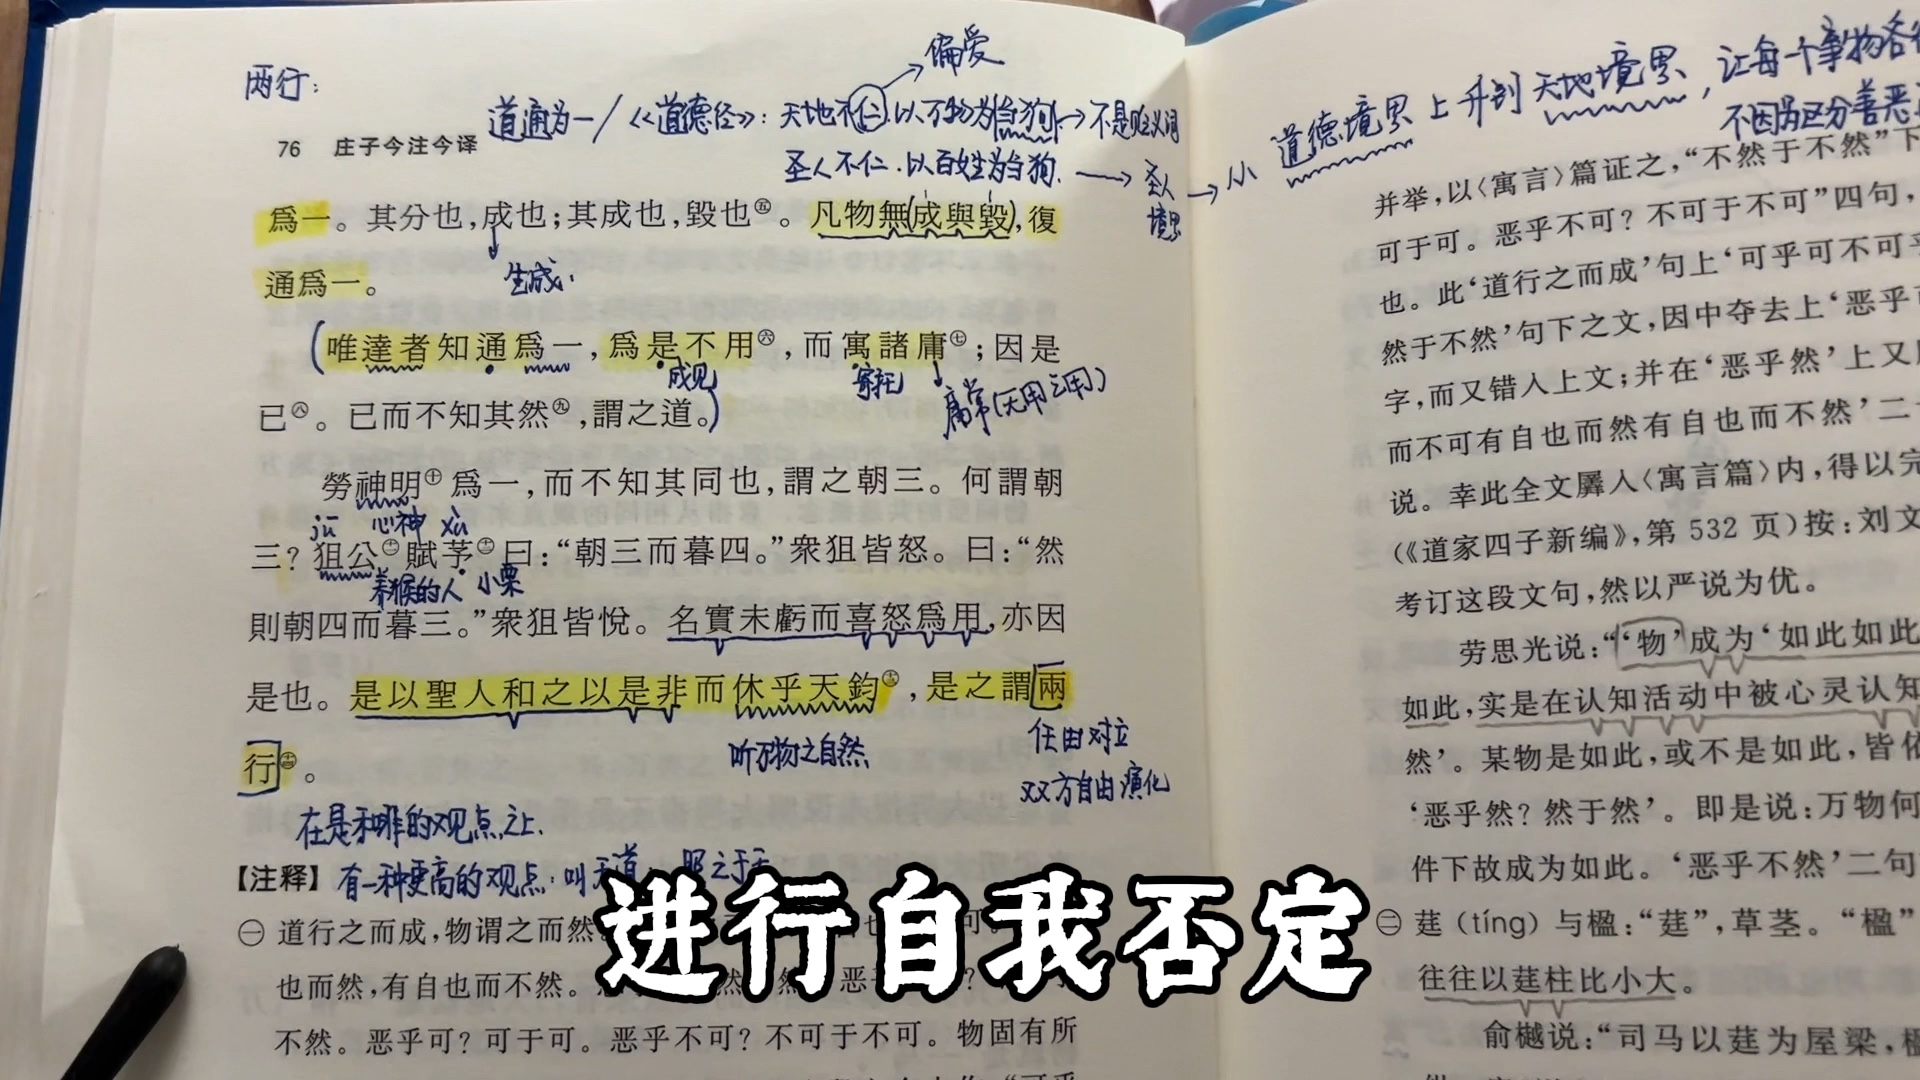 两行：
偏爱
道通为一/《道德经》：天地不仁.以万物为刍狗→不是贬义词
圣人不仁.以百姓为刍狗.→圣人境界→小
道德境界上升到天地境界，让每一个事物各
不因为区分善恶
76 庄子今注今译
爲一。其分也，成也；其成也，毀也㊄。凡物無成與毀，復
生成.
通爲一。
唯達者知通爲一，爲是不用㊅，而寓諸庸㊆；因是
成见 寄托 庸常(无用之用)
已㊇。已而不知其然㊈，謂之道。
勞神明㊉爲一，而不知其同也，謂之朝三。何謂朝
jū 心神 xù
三？狙公賦芧曰：“朝三而暮四。”衆狙皆怒。曰：“然
养猴的人 小栗
則朝四而暮三。”衆狙皆悅。名實未虧而喜怒爲用，亦因
是也。是以聖人和之以是非而休乎天鈞，是之謂兩
听万物之自然 任由对立
行。
双方自由演化
在是和非的观点之上.
【注释】有一种更高的观点：叫天道 照之于天
㊀ 道行之而成，物谓之而然
也而然，有自也而不然。
不然。恶乎可？可于可。恶乎不可？不可于不可。物固有所
进行自我否定
并举，以〈寓言〉篇证之，“不然于不然”下
可于可。恶乎不可？不可于不可”四句，
也。此‘道行之而成’句上‘可乎可不可乎
然于不然’句下之文，因中夺去上‘恶乎可
字，而又错入上文；并在‘恶乎然’上又
而不可有自也而然有自也而不然’二
说。幸此全文羼人〈寓言篇〉内，得以完
（《道家四子新编》，第 532 页）按：刘文
考订这段文句，然以严说为优。
劳思光说：“‘物’成为‘如此如此
如此，实是在认知活动中被心灵认知
然’。某物是如此，或不是如此，皆依
‘恶乎然？然于然’。即是说：万物何
件下故成为如此。‘恶乎不然’二句
㊁ 莛（tíng）与楹：“莛”，草茎。“楹”
往往以莛柱比小大。
俞樾说：“司马以莛为屋梁，楹